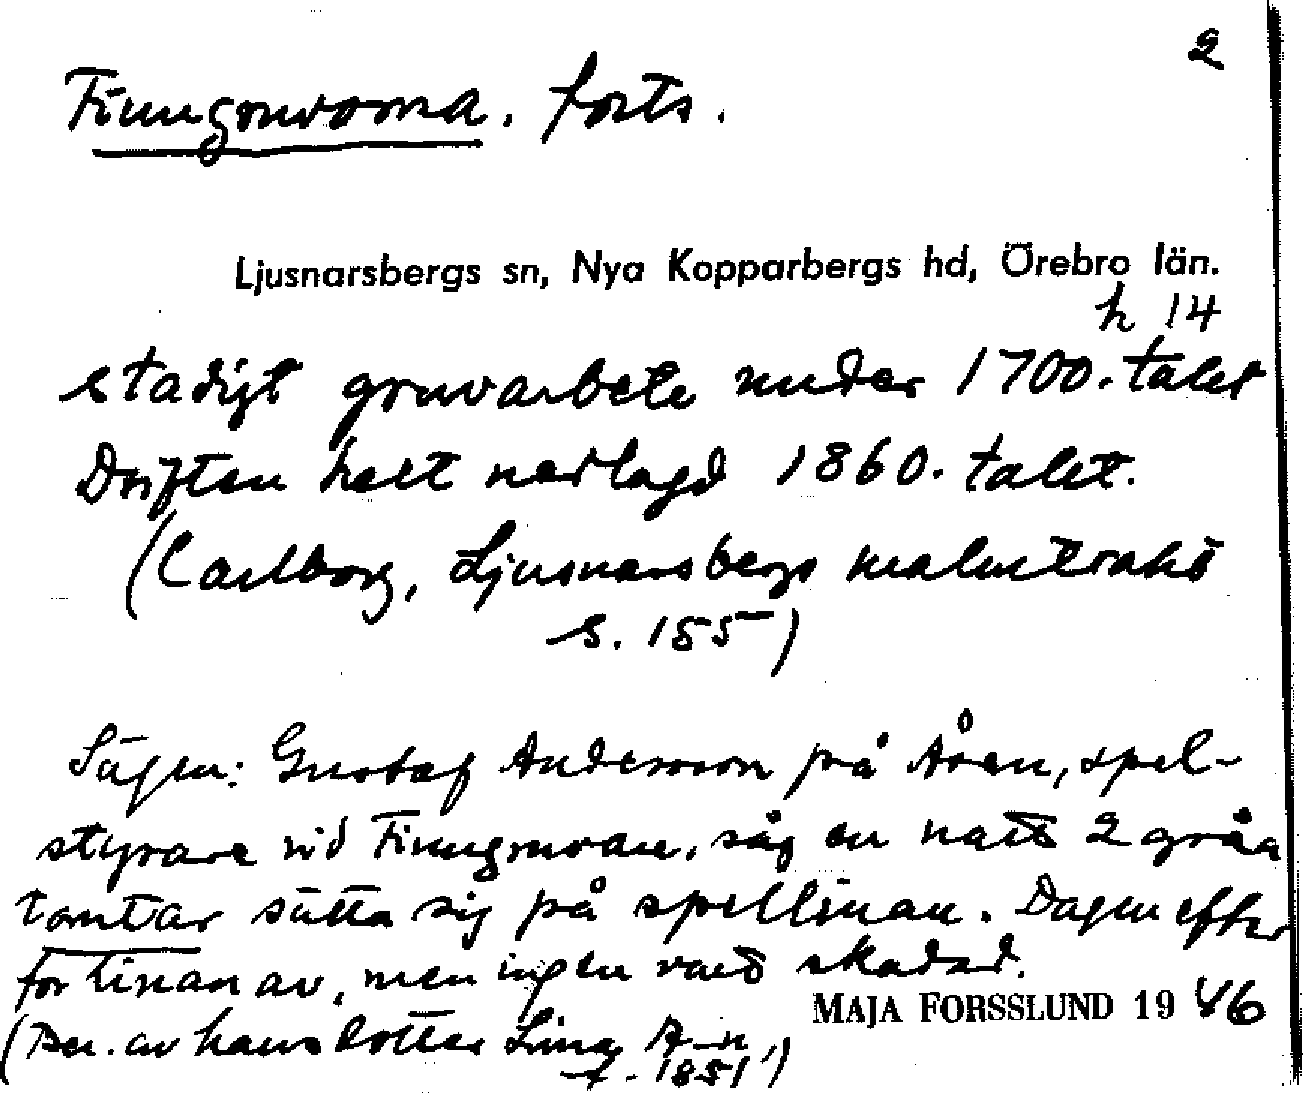 2
Finngruvorna. forts.
Ljusnarsbergs sn, Nya Kopparbergs hd, Örebro län.
h 14
stadigt gruvarbete under 1700-talet
Driften helt nedlagd 1860-talet.
(Carlborg, Ljusnarsbergs malmtrakt
s. 155)
Sägen: Gustaf Andersson på Åren, spel-
styrare vid Finngruvan, såg en natt 2 gråa
tomtar sätta sig på spellinan. Dagen efter
for linan av, men ingen vart skadad.
MAJA FORSSLUND 1946
(Ber. av hans dotter Lina A-n,
f. 1851)